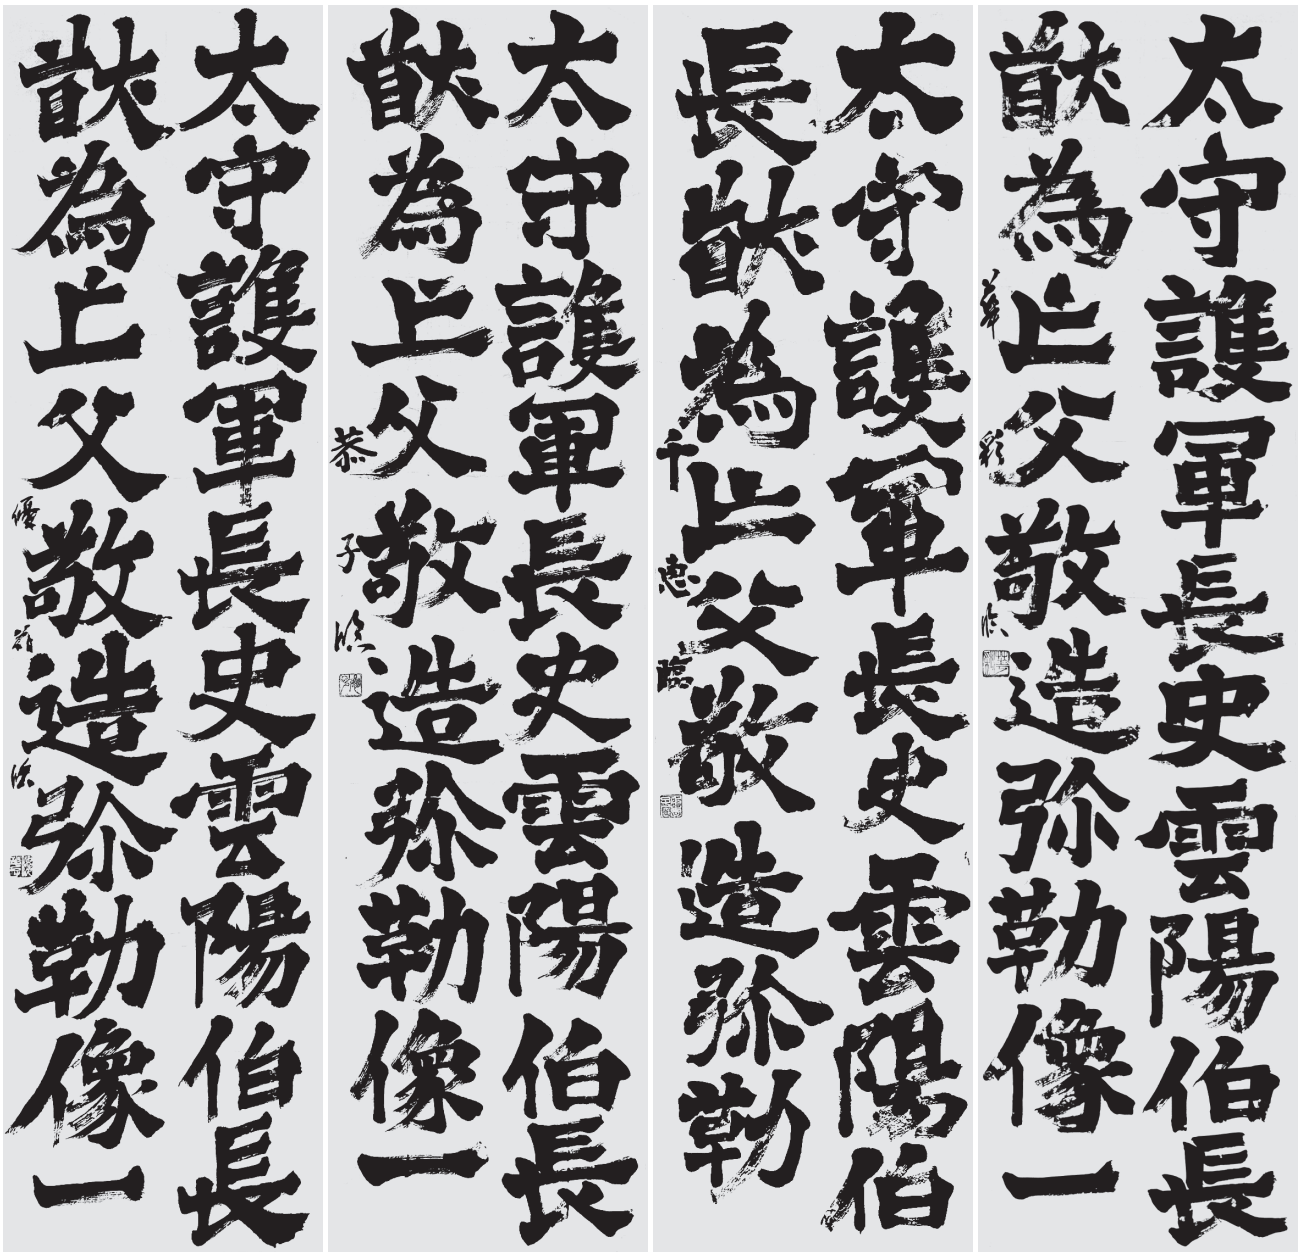 太守護軍長史雲陽伯長
猷為亡父敬造弥勒像一
華彩臨
太守護軍長史雲陽伯
長猷為亡父敬造弥勒
千恵臨
太守護軍長史雲陽伯長
猷為亡父敬造弥勒像一
恭子臨
太守護軍長史雲陽伯長
猷為亡父敬造弥勒像一
優臨